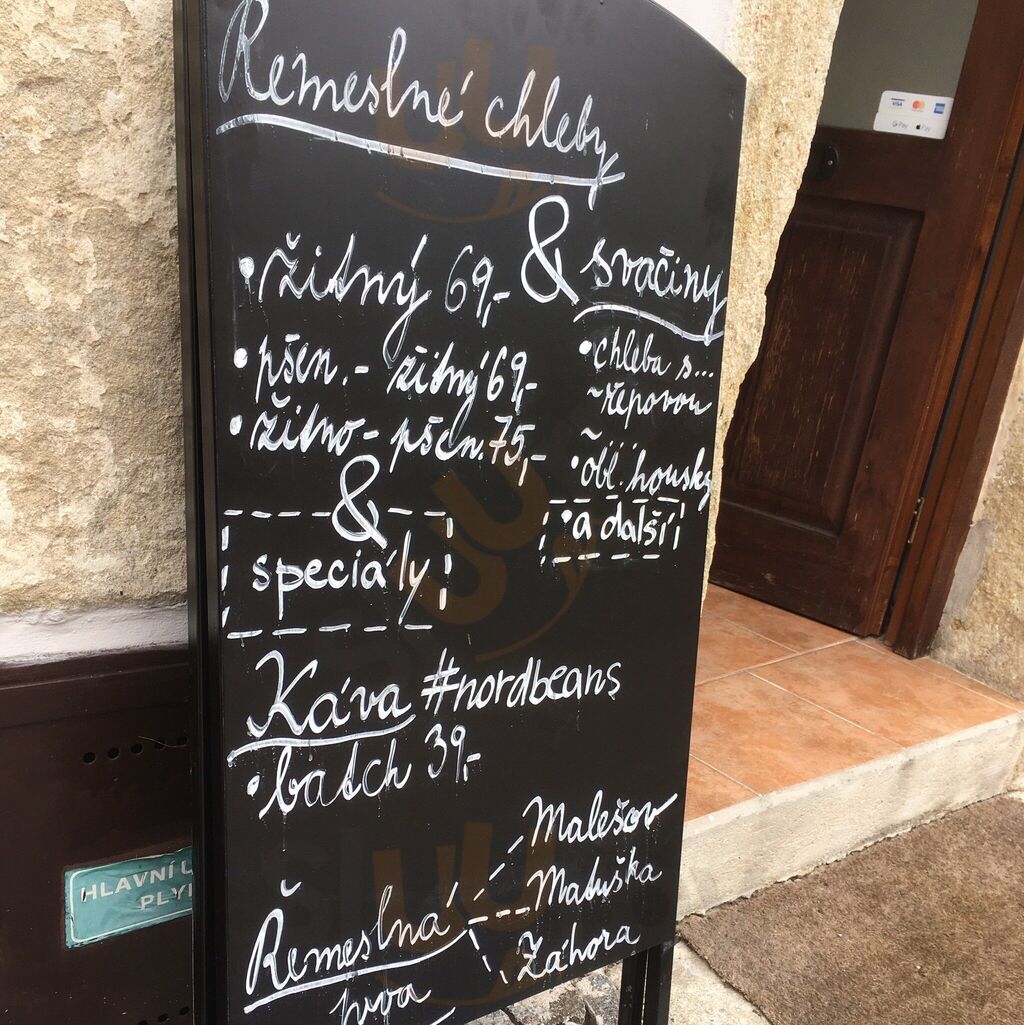 Řemeslné chleby
& svačiny
• žitný 69,-
• pšen.- žitný 69,-
• žitno- pšen. 75,-
&
speciály
• chleba s...
~řepovou
~
• obl. housky
• a další
Káva #nordbeans
• batch 39,-
Řemeslná
piva
Malešov
Matuška
Záhora
HLAVNÍ U
PLY
VISA
Pay
Pay